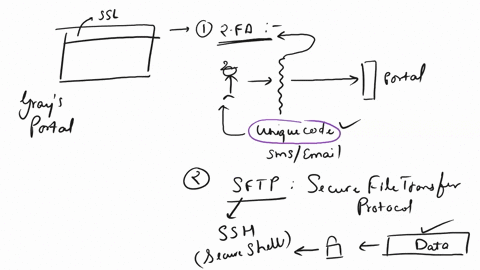 SSL
① 2-FA :-
Gray's
Portal
Portal
Unique code
SMS/Email
② SFTP : Secure File Transfer
Protocol
SSH
(Secure Shell)
Data